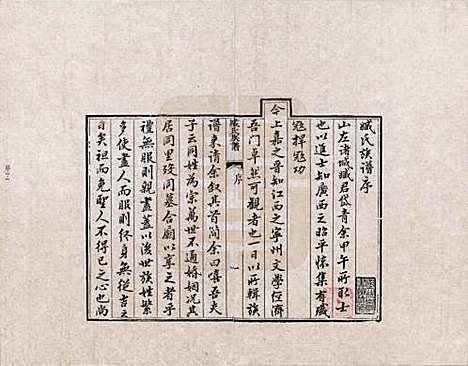 臧氏族譜序
山左諸城臧君岱青余甲午所取士
也以進士知廣西之昭平懷集有殲
冦捍冦功
今上嘉之晋知江西之寧州文學經濟
吾門卓然可觀者也一日以所輯族
臧氏族譜 序 一
譜東請余叙其首簡余曰嘻吾夫
子云同姓為宗萬世不通婚姻况其
居同里殁同墓合廟以享之者乎
禮無服則親盡蓋以後世族姓繁
多使盡人而服則終身無從吉之
日矣袒而免聖人不得已之心也尚